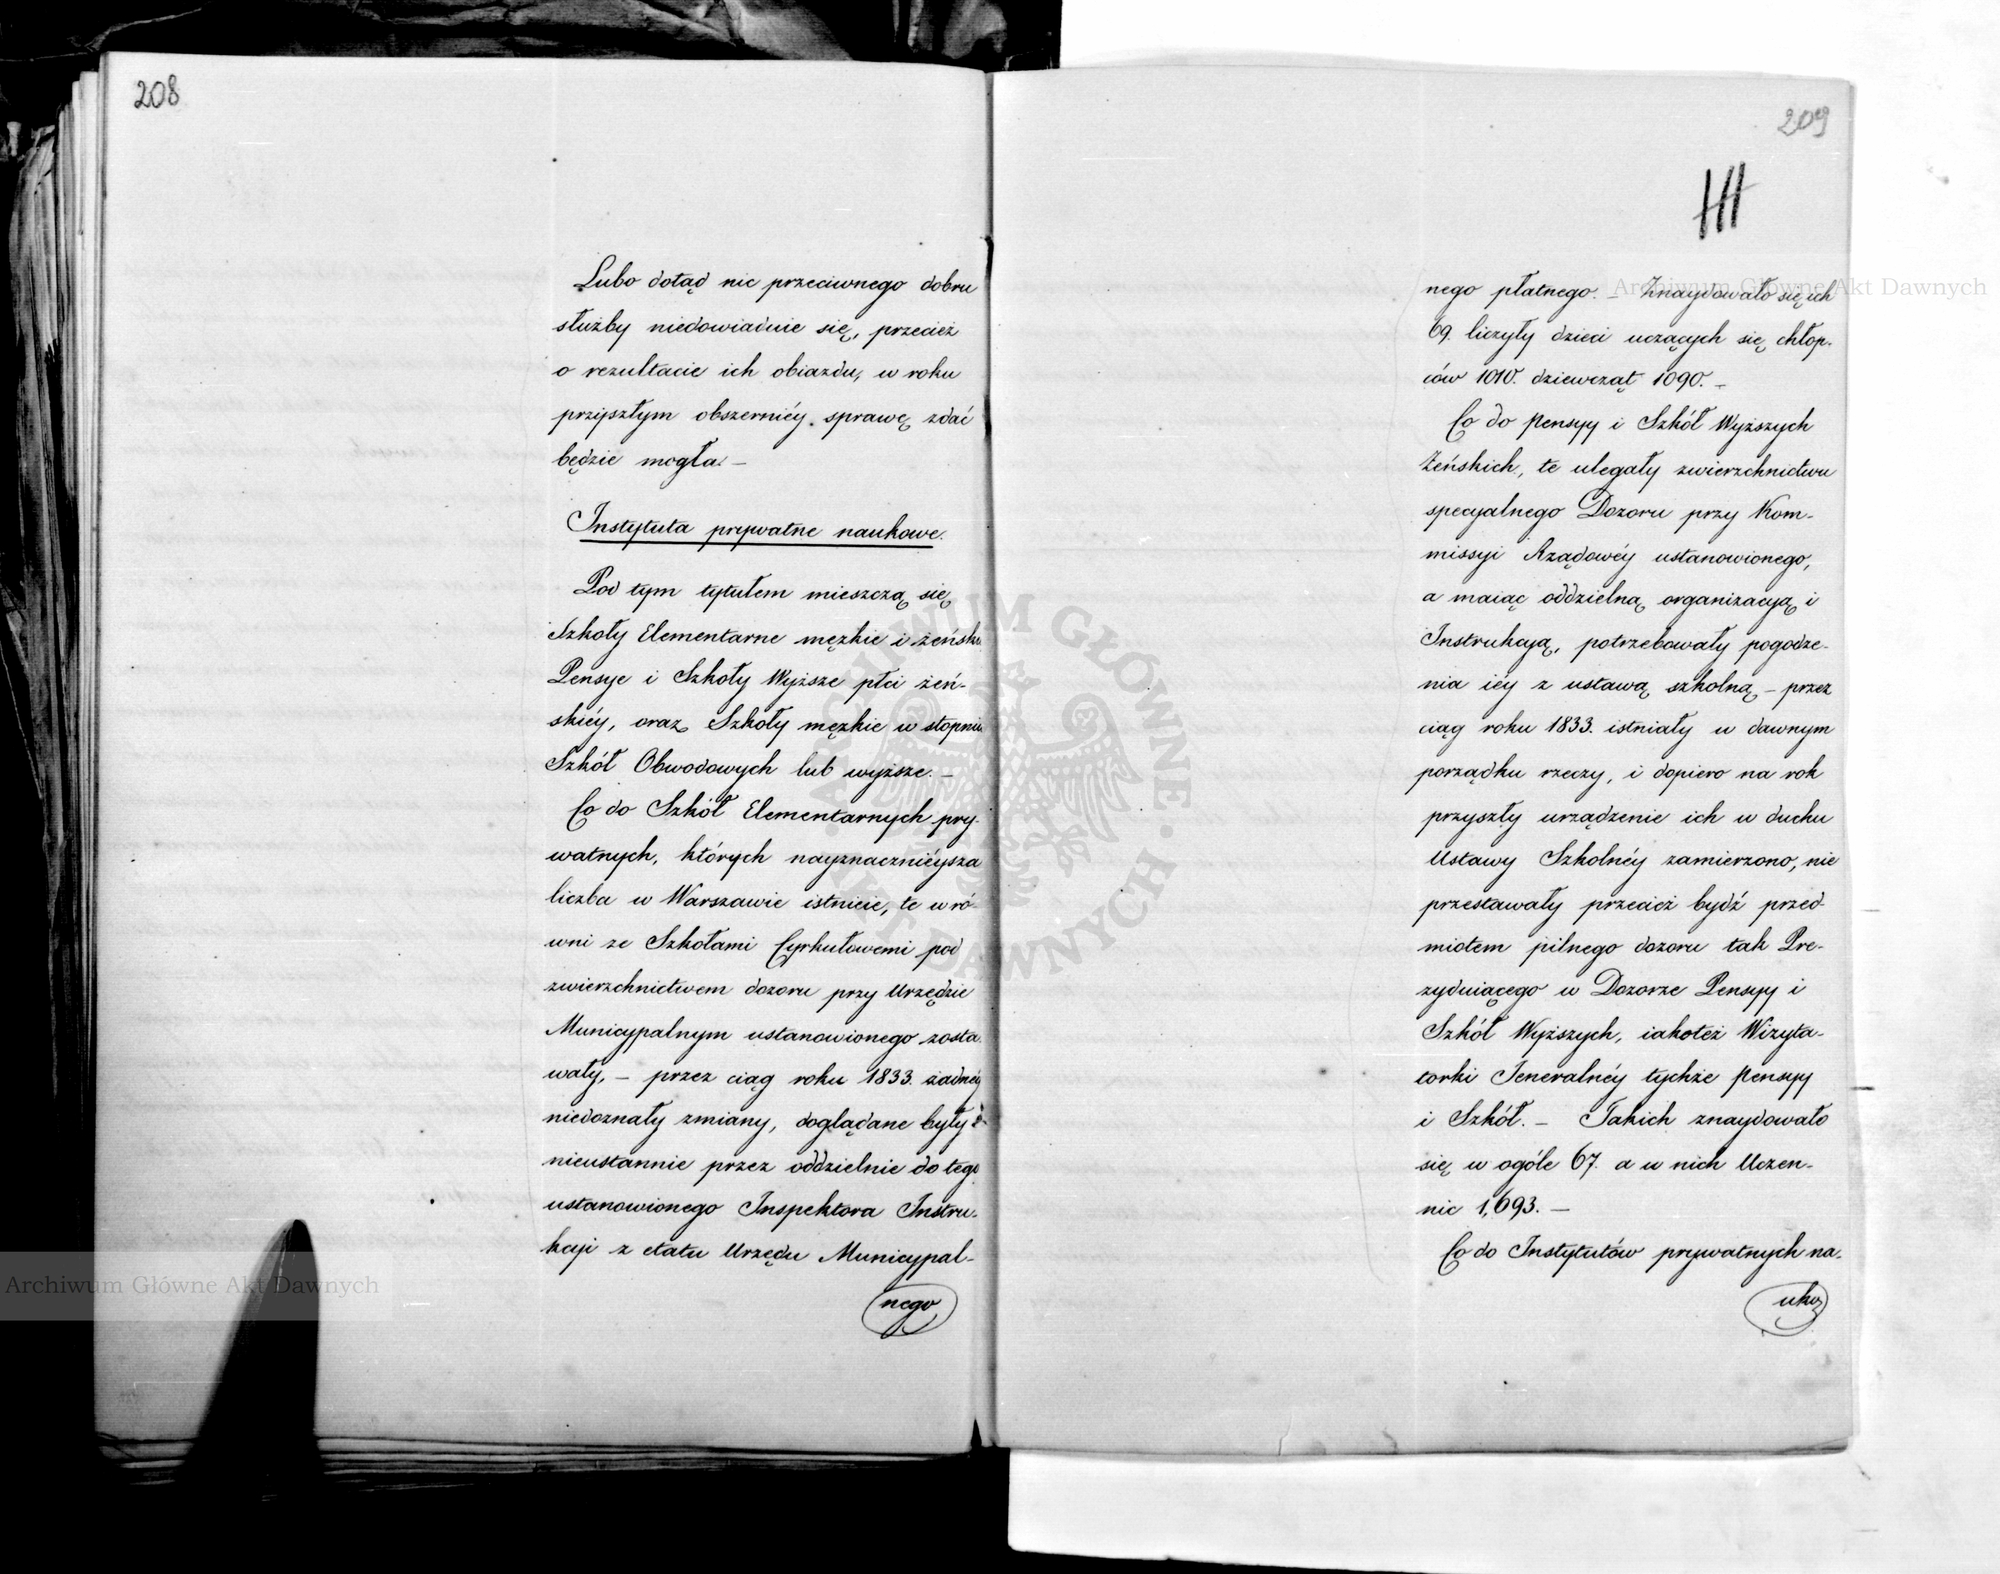 208
Lubo dotąd nic przeciwnego dobru
służby niedowiaduie się, przecież
o rezultacie ich obiazdu, w roku
przyszłym obszerniéy sprawę zdać
będzie mogła. —
Instytuta prywatne naukowe.
Pod tym tytułem mieszczą się
Szkoły Elementarne męzkie i żeńskie
Pensye i Szkoły Wyższe płci żeń-
skiéy, oraz Szkoły męzkie w stopniu
Szkół Obwodowych lub wyższe. —
Co do Szkół Elementarnych pry-
watnych, których nayznacznieysza
liczba w Warszawie istnieie, te w ró-
wni ze Szkołami Cyrkułowemi pod
zwierzchnictwem dozoru przy Urzędzie
Municypalnym ustanowionego zosta-
wały, — przez ciąg roku 1833. żadnéy
niedoznały zmiany, doglądane były
nieustannie przez oddzielnie do tego
ustanowionego Inspektora Instru-
kcji z etatu Urzędu Municypal-
nego
209
III
nego płatnego. — Znaydowało się ich
69. liczyły dzieci uczących się chłop-
ców 1010. dziewcząt 1090. —
Co do Pensyy i Szkół Wyższych
Żeńskich, te ulegały zwierzchnictwu
specyalnego Dozoru przy Kom-
missyi Rządowéy ustanowionego,
a maiąc oddzielną organizacyą i
Instrukcyą, potrzebowały pogodze-
nia iéy z ustawą szkolną, — przez
ciąg roku 1833. istniały w dawnym
porządku rzeczy, i dopiero na rok
przyszły urządzenie ich w duchu
Ustawy Szkolnéy zamierzono, nie
przestawały przecież bydź przed-
miotem pilnego dozoru tak Pre-
zyduiącego w Dozorze Pensyy i
Szkół Wyższych, iakoteż Wizyta-
torki Jeneralnéy tychże Pensyy
i Szkół. — Takich znaydowało
się w ogóle 67. a w nich Uczen-
nic 1,693. —
Co do Instytutów prywatnych na-
uko
Archiwum Główne Akt Dawnych
Archiwum Główne Akt Dawnych
ARCHIWUM GŁÓWNE AKT DAWNYCH